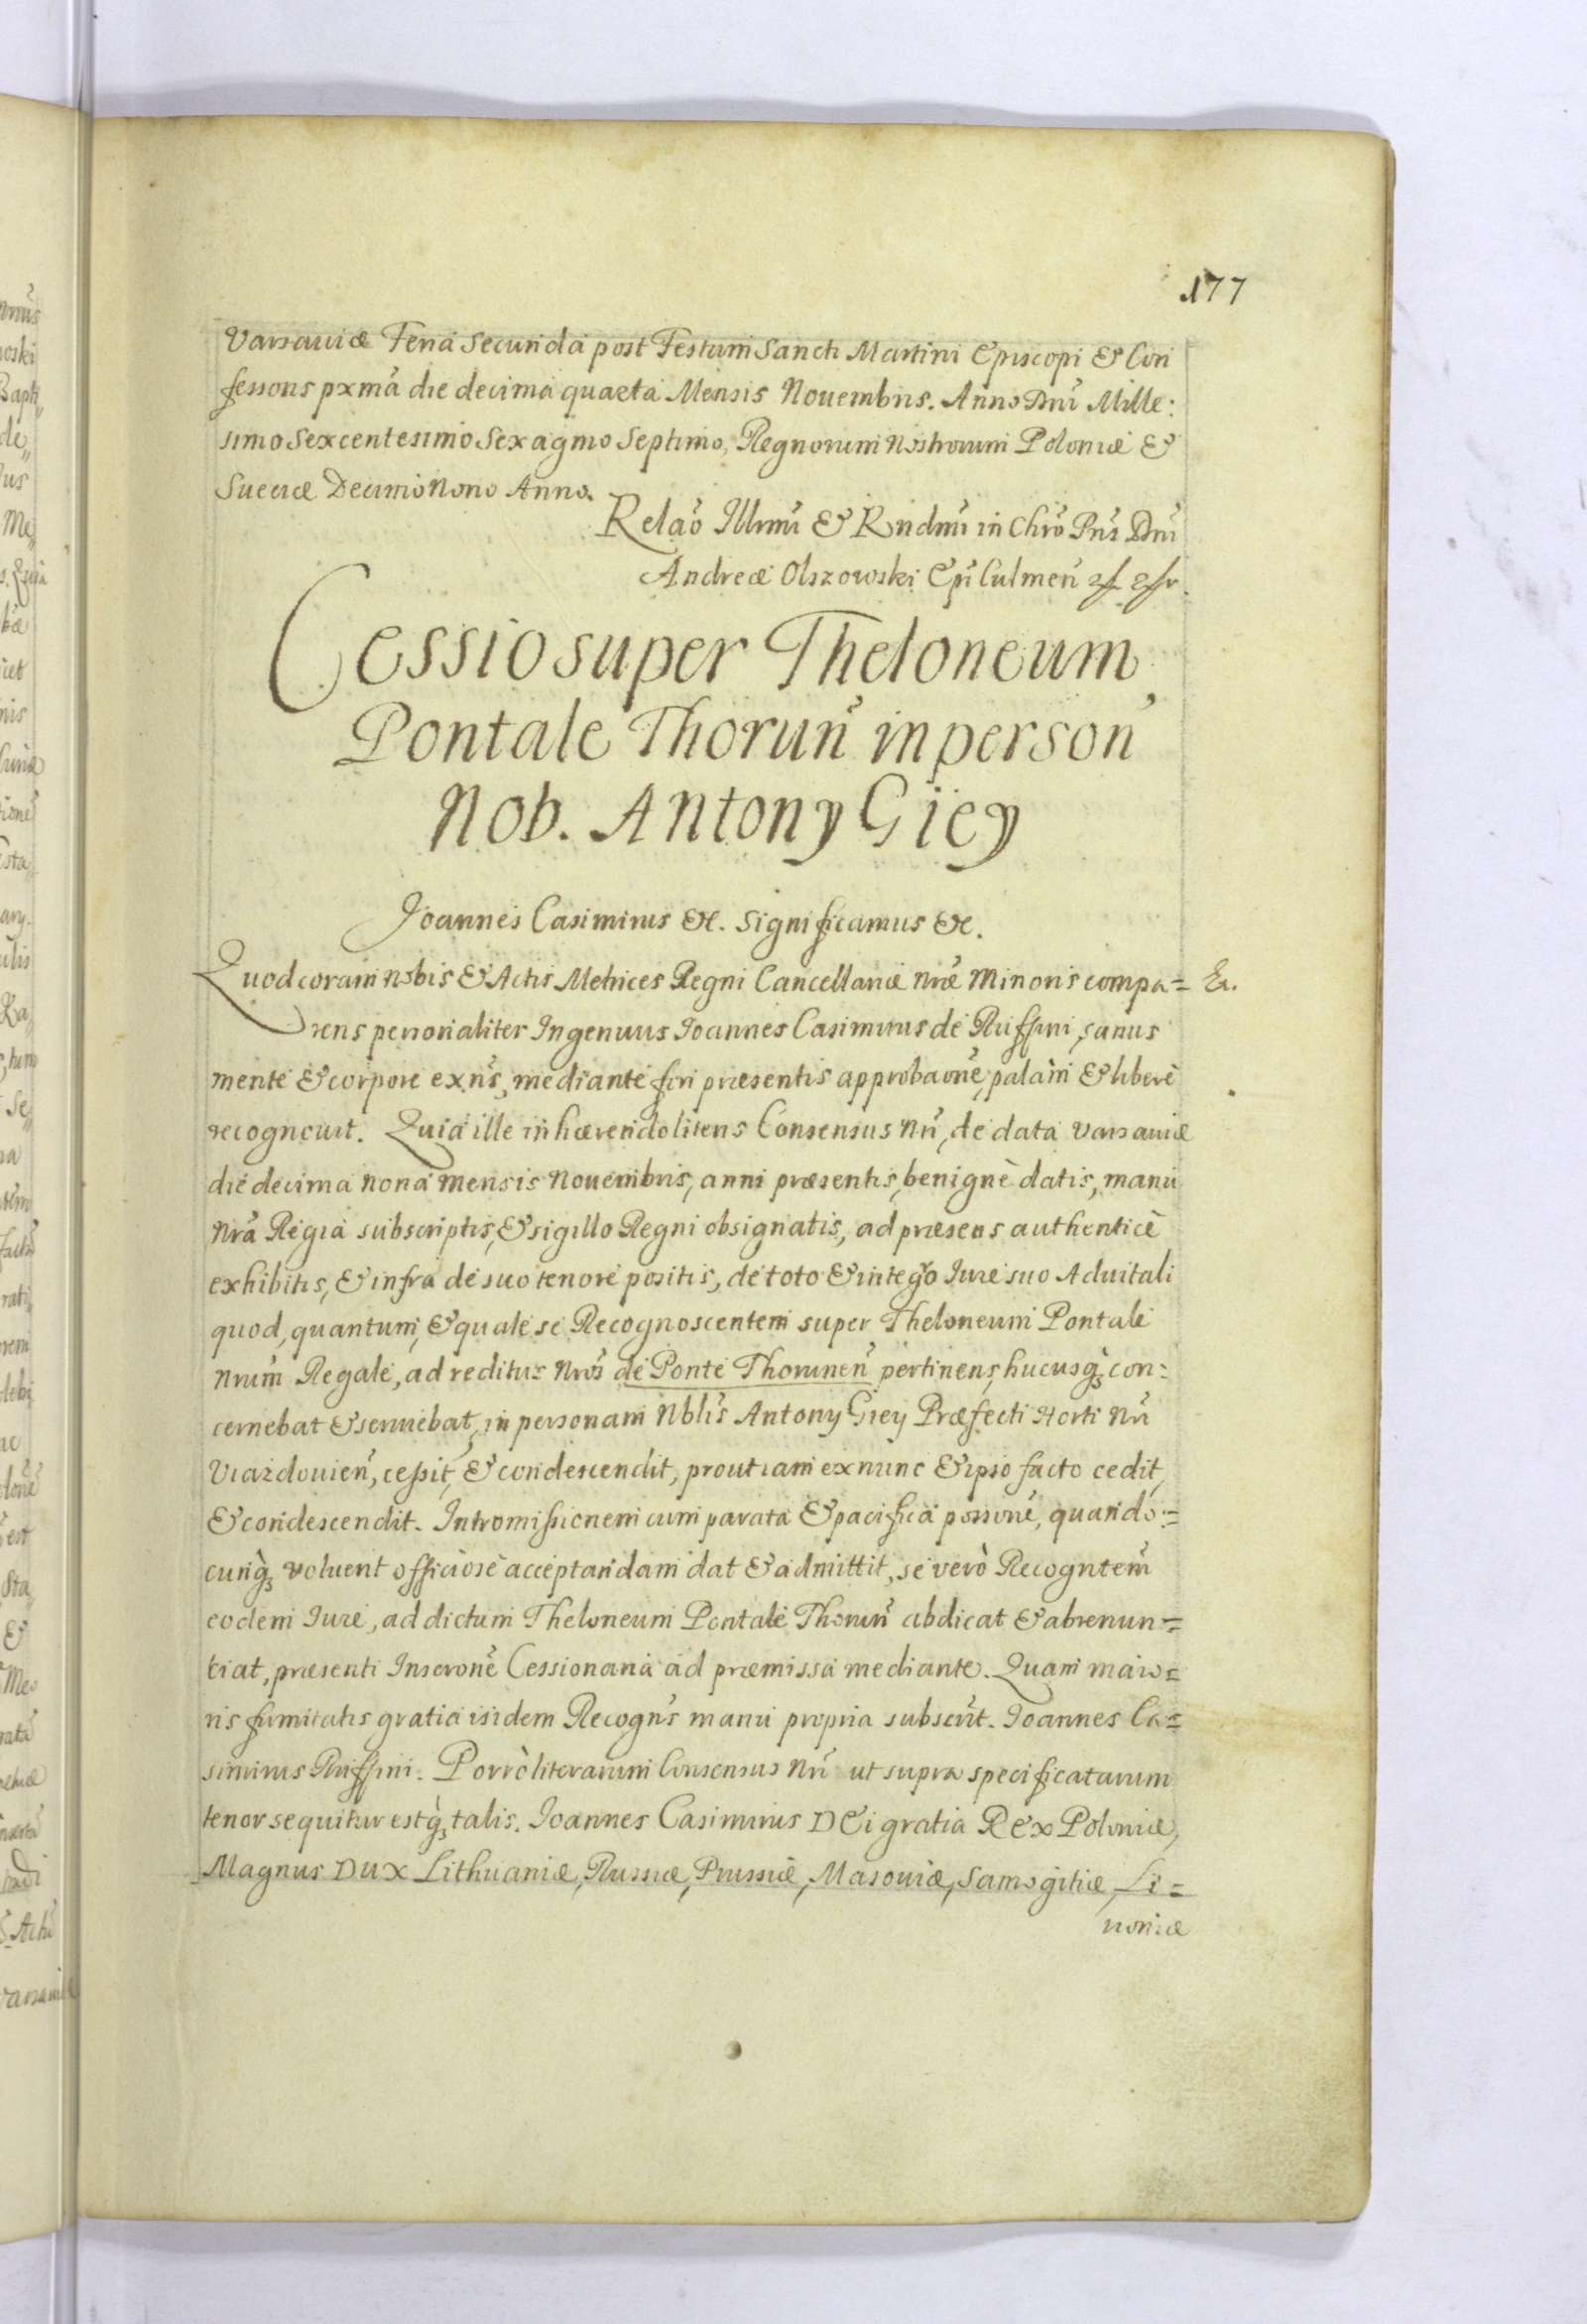 177
Varsauiæ Feria Secunda post Festum Sancti Martini Episcopi & Con
fessoris pxmâ die decima quarta Mensis Nouembris. Anno Dni Mille:
simo Sexcentesimo Sexagmo Septimo, Regnorum Nostrorum Poloniæ &
Sueciæ Decimo Nono Anno.
Relaõ Illrmi & Rndmi in Chrõ Pris Dni
Andreæ Olszowski Epi Culmeñ
Cessio super Theloneum
Pontale Thoruñ in persoñ
Nob. Antony Giey
Joannes Casimirus &c. Significamus &c.
Quod coram nobis & Actis Metrices Regni Cancellariæ nræ Minoris compa= &.
rens personaliter Ingenuus Ioannes Casimirus de Ruffini, sanus
mente & corpore exñs, mediante fori præsentis approbaone, palàm & liberè
recognouit. Quia ille inhærendo literis Consensus nri, de data Varsauiæ
die decima nona mensis Nouembris, anni præsentis, benignè datis, manu
nrâ Regia subscriptis, & sigillo Regni obsignatis, ad præsens authenticè
exhibitis, & infra de suo tenore positis, de toto & integro Iure suo Aduitali
quod, quantum, & quale se Recognoscentem super Theloneum Pontale
nrum Regale, ad reditus nros de Ponte Thoruneñ pertinens, hucusq; con:
cernebat & seruiebat, in personam Nblis Antony Giey Præfecti Horti nri
Viazdouieñ, cessit, & condescendit, prout iam ex nunc & ipso facto cedit,
& condescendit. Intromissionem cum parata & pacifica possone, quando=
cunq; voluerit officiosè acceptandam dat & admittit, se verò Recogntem
eodem Iure, ad dictum Theloneum Pontale Thoruñ abdicat & abrenun=
tiat, præsenti Inscrone Cessionaria ad præmissa mediante. Quam maio=
ris firmitatis gratia iisdem Recogns manu propria subscrit. Joannes Ca=
simirus Ruffini. Porrò literarum Consensus nri ut supra specificatarum
tenor sequitur estq; talis. Joannes Casimirus DEi gratia REx Poloniæ,
Magnus DUX Lithuaniæ, Russiæ, Prussiæ, Masouiæ, Samogitiæ, Li=
uoniæ